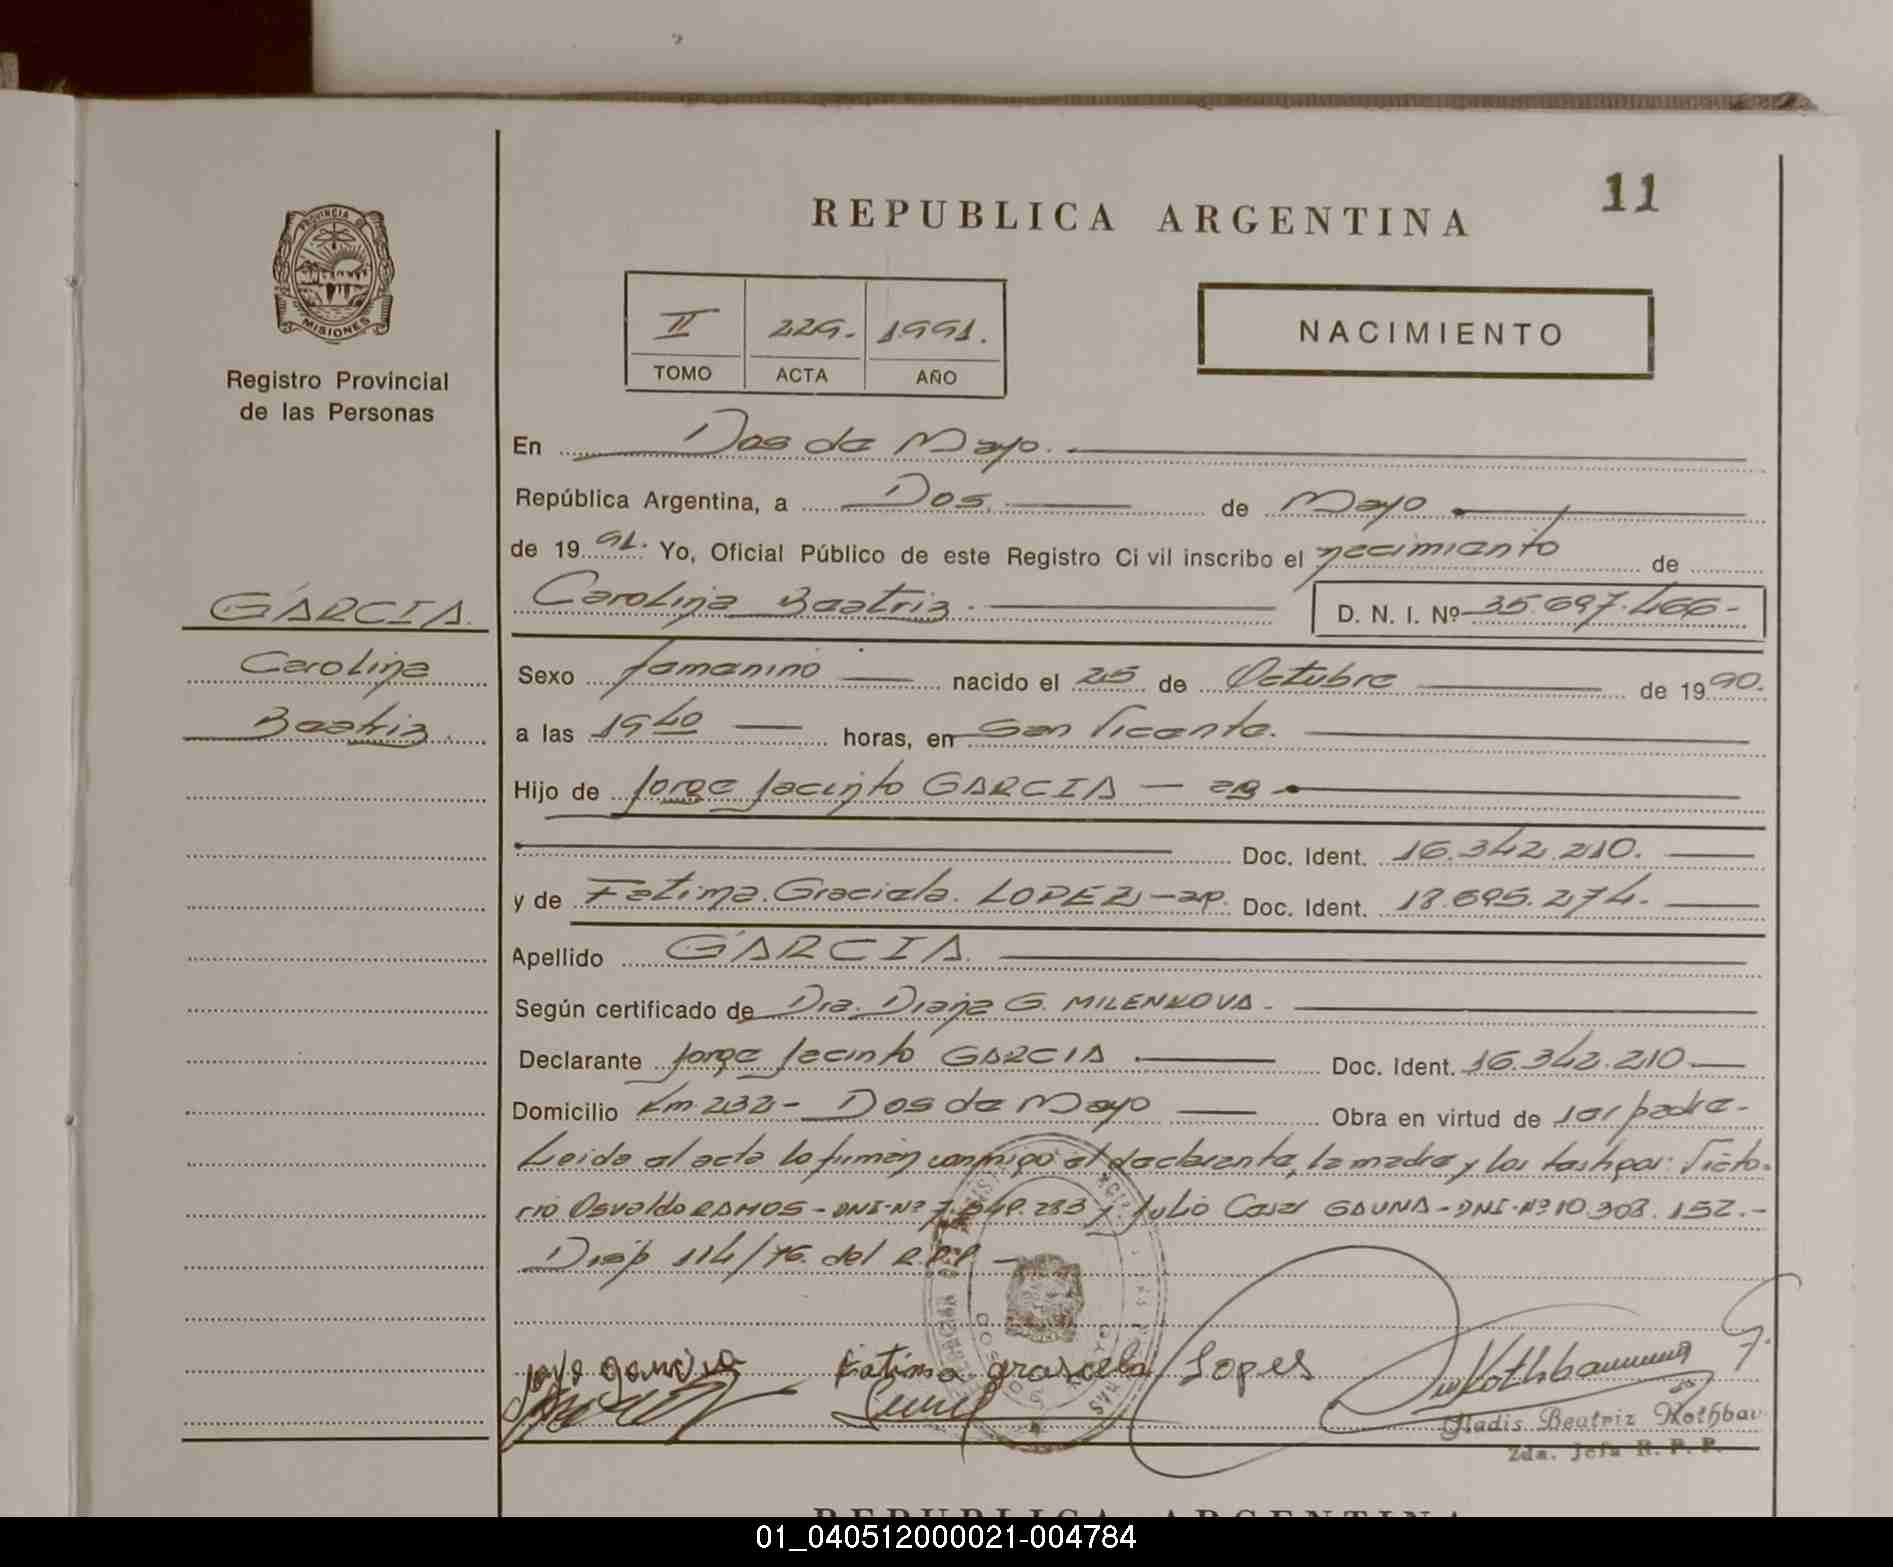 11
REPUBLICA ARGENTINA
PROVINCIA DE
MISIONES
Registro Provincial
de las Personas
II 229. 1991.
TOMO ACTA AÑO
NACIMIENTO
En Dos de Mayo.
República Argentina, a Dos. de Mayo
de 19 91. Yo, Oficial Público de este Registro Civil inscribo el nacimiento de
GARCIA. Carolina Beatriz. D. N. I. Nº 35.697.466-
Carolina Sexo femenino nacido el 25 de Octubre de 19 90.
Beatriz. a las 19 40 horas, en San Vicente.
Hijo de Jorge Jacinto GARCIA — arg
Doc. Ident. 16.342.210.
y de Fatima. Graciela. LOPEZ — Doc. Ident. 18.695.274.
Apellido GARCIA.
Según certificado de Dra. Diana G. MILENKOVA -
Declarante Jorge Jacinto GARCIA Doc. Ident. 16.342.210
Domicilio Km 232 - Dos de Mayo Obra en virtud de ser padre -
Leida el acta lo firman conmigo el declarante, la madre y los testigos: Victo-
rio Osvaldo RAMOS - DNI-Nº 283 y Julio Cesar GAUNA - DNI-Nº 10.308.152.-
Disp 114/76. del R.P.P -
jorge garcia Fatima graciela Lopes
Gladis Beatriz Rothbau
2da. Jefa R. P. P.
REPUBLICA ARGENTINA
01_040512000021-004784